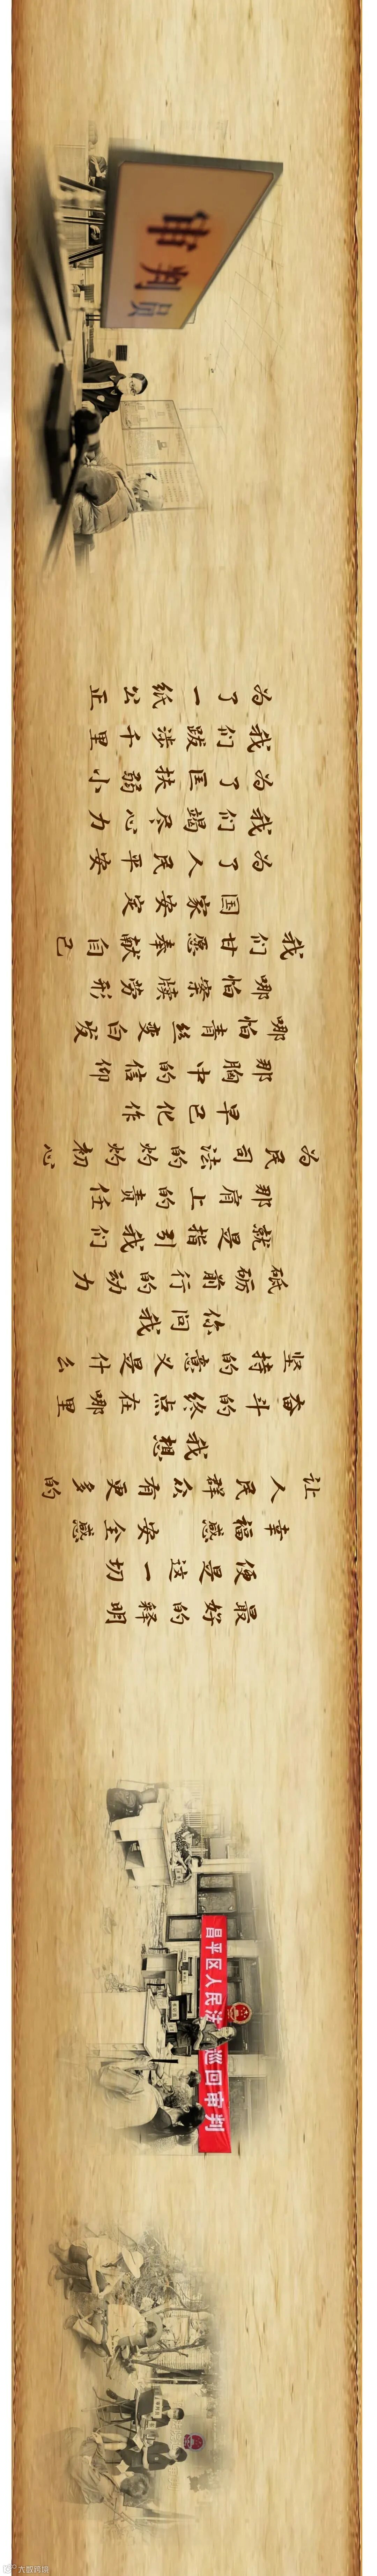 审判员
为了一纸公正
我们跋涉千里
为了匡扶弱小
我们竭尽心力
为了人民平安
国家安定
我们甘愿奉献自己
哪怕案牍劳形
哪怕青丝变白发
那胸中的信仰
早已化作
为民司法的灼灼初心
那肩上的责任
就是指引我们
砥砺前行的动力
你问我
坚持的意义是什么
奋斗的终点在哪里
我想
让人民群众有更多的
幸福感 安全感
便是这一切
最好的释明
昌平区人民法 巡回审判
大数跨境